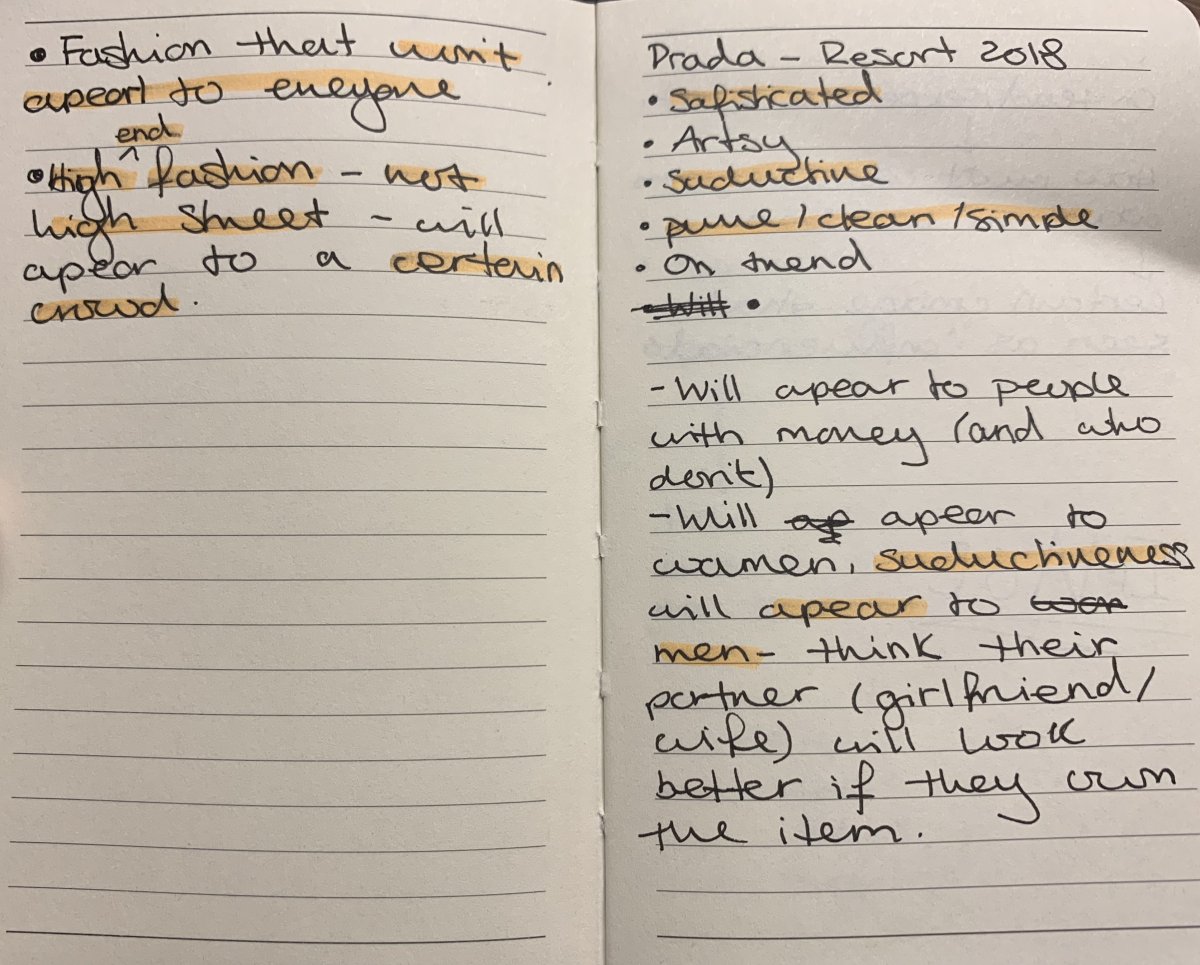 • Fashion that won't
apearl to everyone
end
• High ^ fashion - not
high street - will
apear to a certain
crowd.
Prada - Resort 2018
• Safisticated
• Artsy
• Suductive
• pure / clean / simple
• On trend
Will •
- Will apear to people
with money (and who
don't)
- Will ap apear to
women, suductiveness
will apear to wom
men - think their
partner (girlfriend/
wife) will look
better if they own
the item.